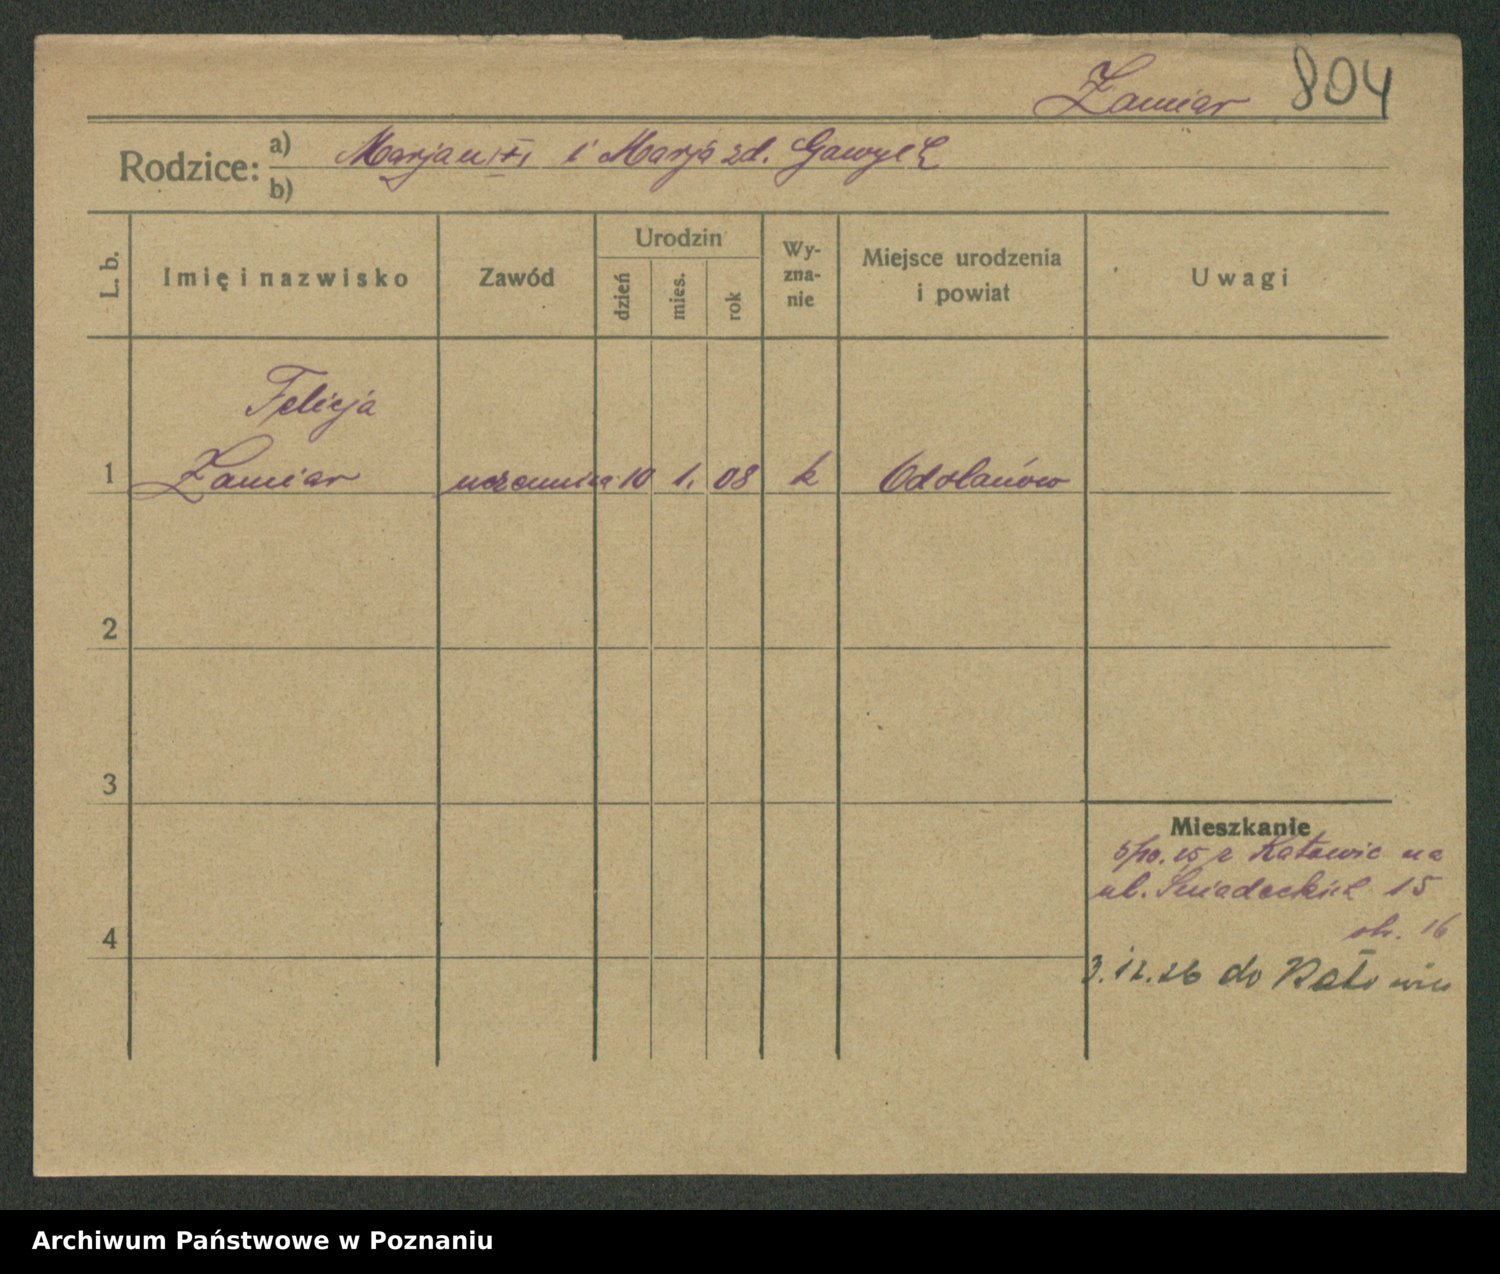 Zamiar 804
Rodzice: a) Marjan (+) i Marja zd.
b)
L. b. Imię i nazwisko Zawód Urodzin dzień mies. rok Wyznanie Miejsce urodzenia i powiat Uwagi
Felicja
1 Zamiar uczennica 10 1. 08 k Odolanów
2
3
Mieszkanie
5/10. 25 z Katowic na
ul. Śniadeckich 15
4 16
3.12.26 do Katowic
Archiwum Państwowe w Poznaniu